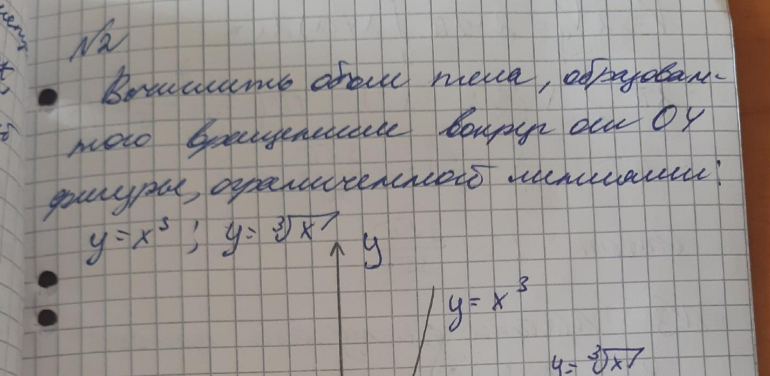 №2
Вычислить объём тела, образован-
ного вращением вокруг оси OY
фигуры, ограниченной линиями:
y = x³ ; y = ∛x
y
y = x³
y = ∛x